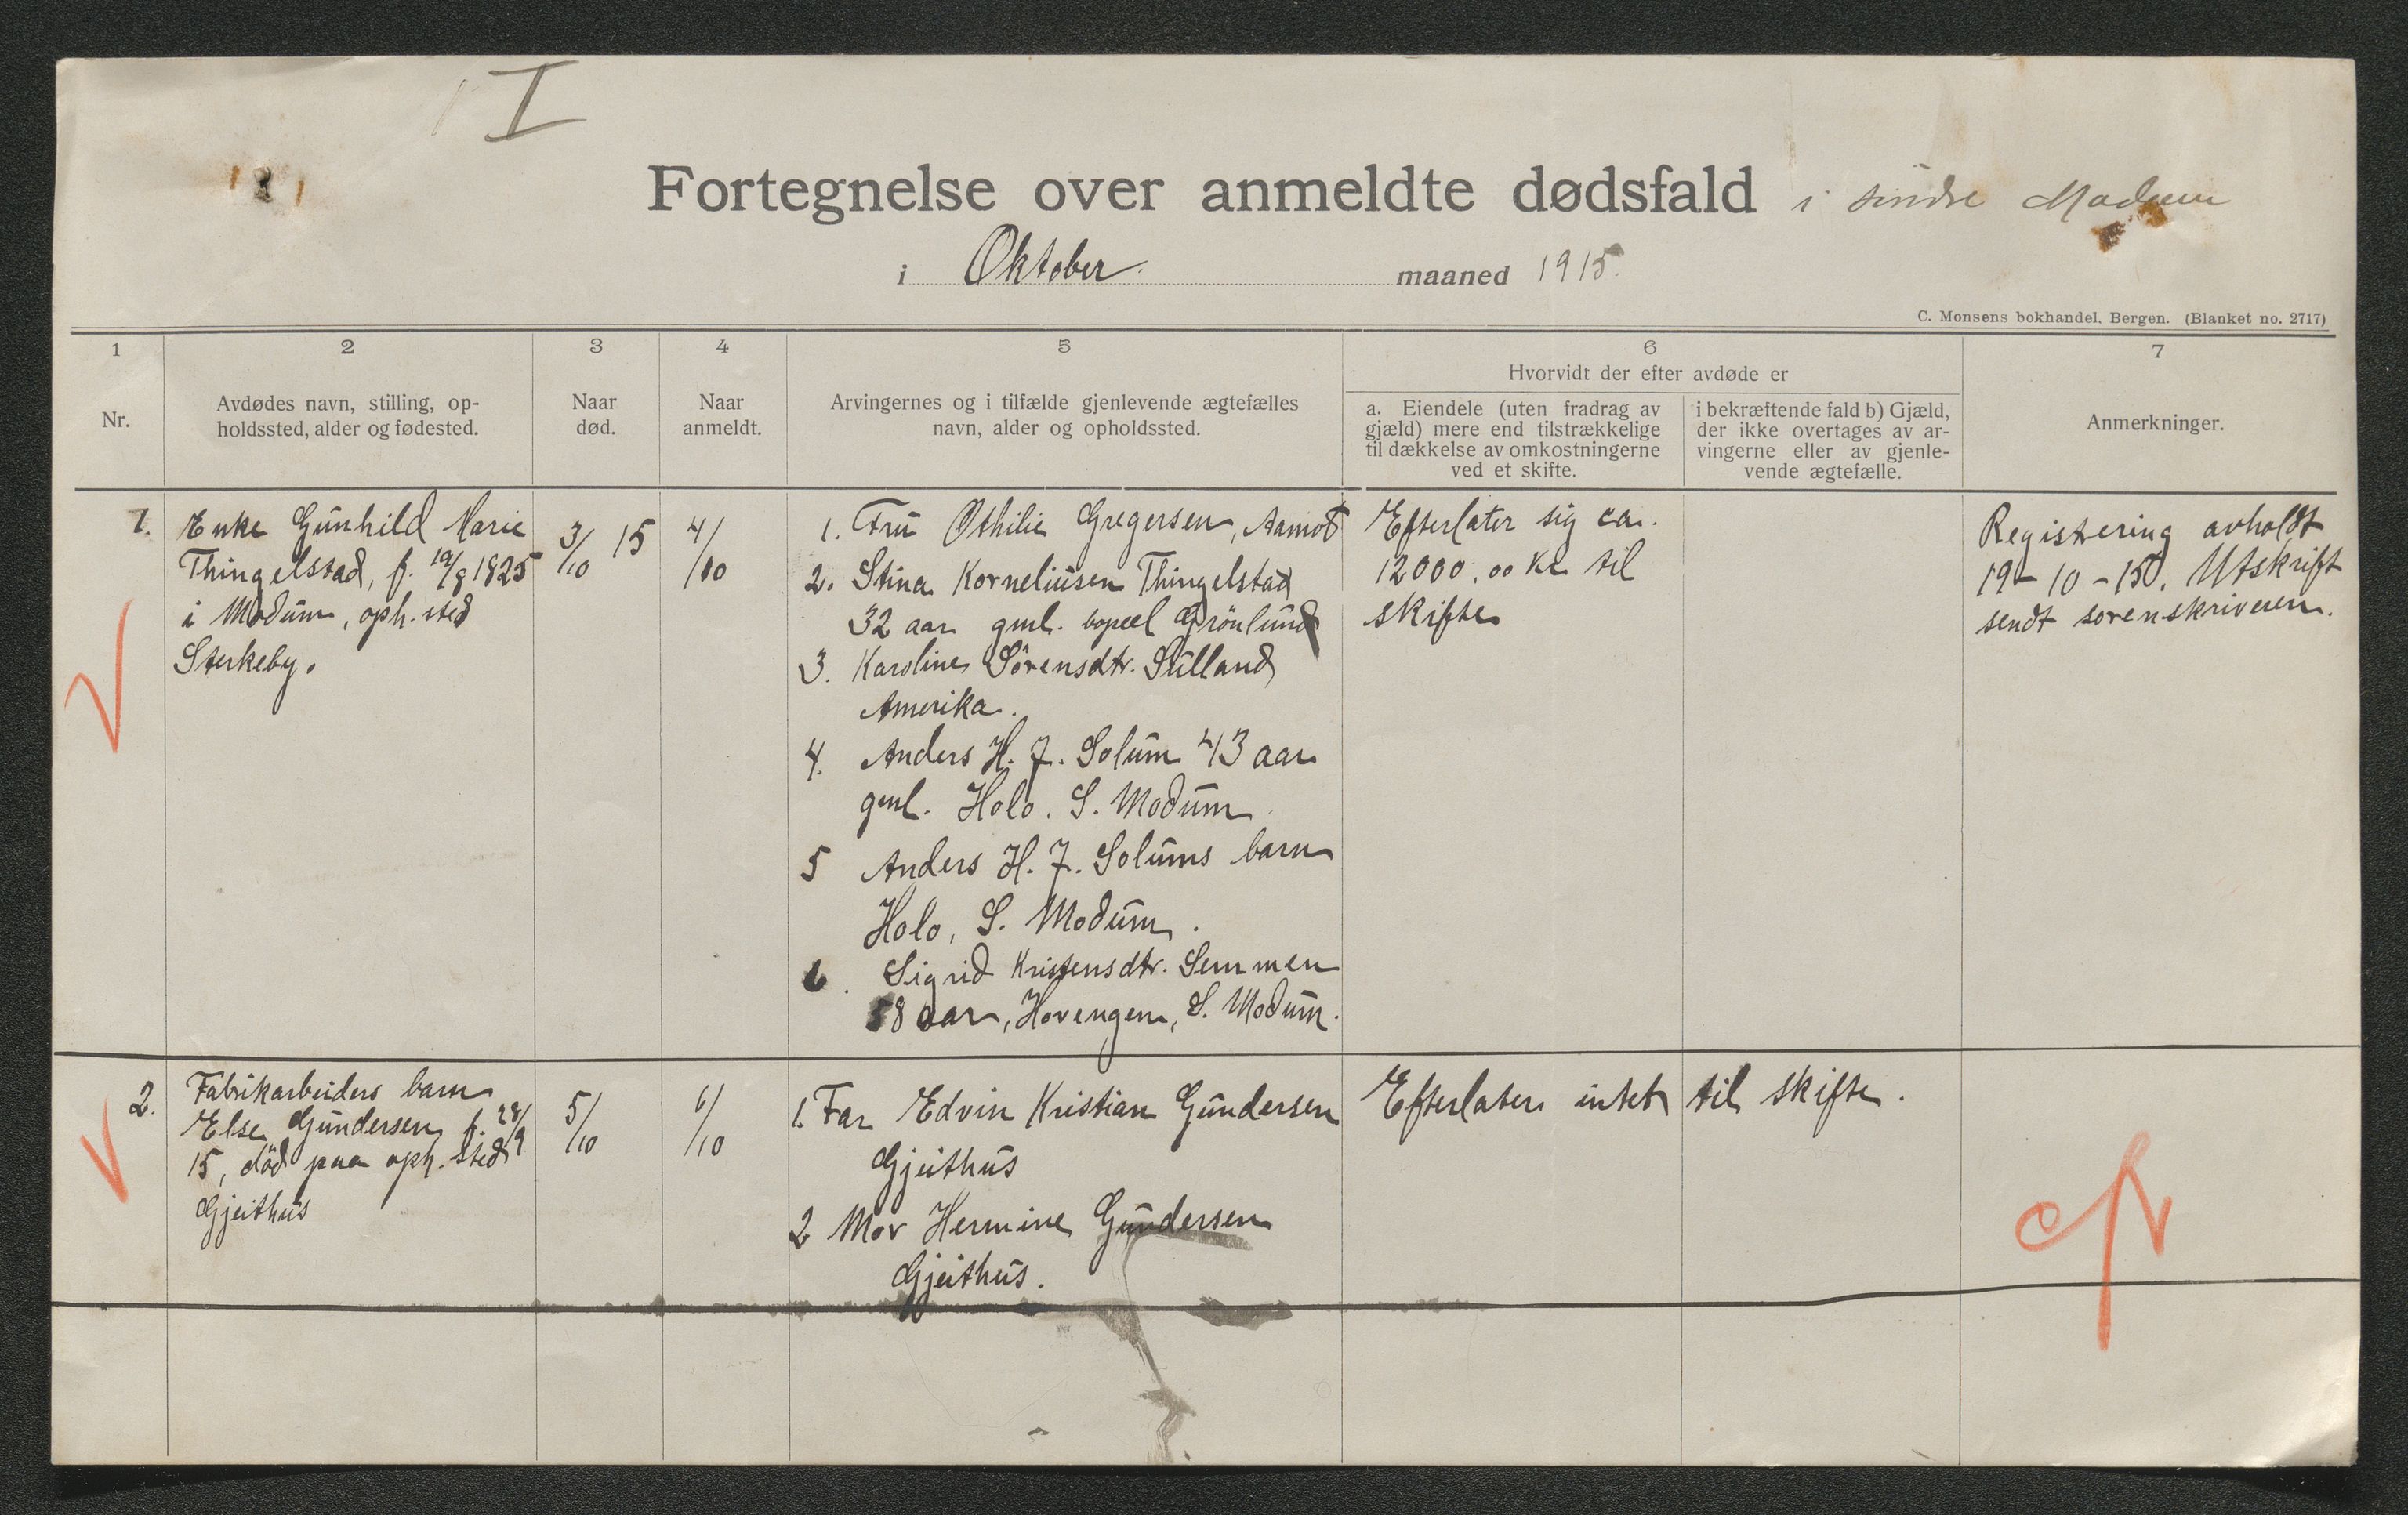 I
Fortegnelse over anmeldte dødsfald i søndre Modum
i Oktober maaned 1915.
C. Monsens bokhandel, Bergen. (Blanket no. 2717)
1
2
3
4
5
6
7
Nr.
Avdødes navn, stilling, op-
holdssted, alder og fødested.
Naar
død.
Naar
anmeldt.
Arvingernes og i tilfælde gjenlevende ægtefælles
navn, alder og opholdssted.
Hvorvidt der efter avdøde er
a. Eiendele (uten fradrag av
gjæld) mere end tilstrækkelige
til dækkelse av omkostningerne
ved et skifte.
i bekræftende fald b) Gjæld,
der ikke overtages av ar-
vingerne eller av gjenle-
vende ægtefælle.
Anmerkninger.
1.
Enke Gunhild Marie
Thingelstad, f. /8 1825
i Modum, oph. sted
Sterkeby.
3/10 15
4/10
1. Fru Othilie Gregersen, Aamot
2. Stina Korneliusen Thingelstad
32 aar gml. bopæl Grönlund
3. Karoline Sörensdtr. Sülland
Amerika.
4. Anders H. J. Solum 43 aar
gml. Holo. S. Modum
5 Anders H. J. Solums barn
Holo, S. Modum.
6. Sigrid Kristensdtr. Semmen
58 aar, Hovengen, S. Modum.
Efterlater sig ca.
12000.00 Kr til
skifte
Registrering avholdt
19-10-15. Utskrift
sendt sorenskriveren.
2.
Fabrikarbeiders barn
Else Gundersen f. 28/9
15, död paa oph. sted
Gjeithus
5/10
6/10
1. Far Edvin Kristian Gundersen
Gjeithus
2 Mor Hermine Gundersen
Gjeithus.
Efterlater intet til skifte.